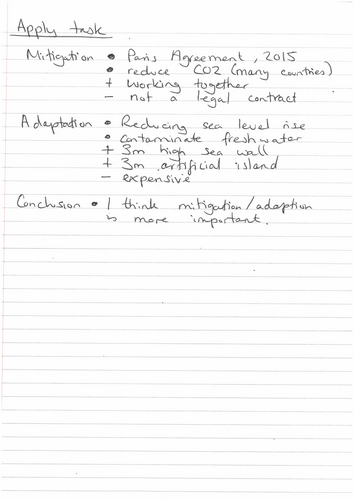 Apply task
Mitigation • Paris Agreement, 2015
• reduce CO2 (many countries)
+ working together
- not a legal contract
Adaptation • Reducing sea level rise
• contaminate freshwater
+ 3m high sea wall
+ 3m artificial island
- expensive
Conclusion • I think mitigation/adaption
is more important.